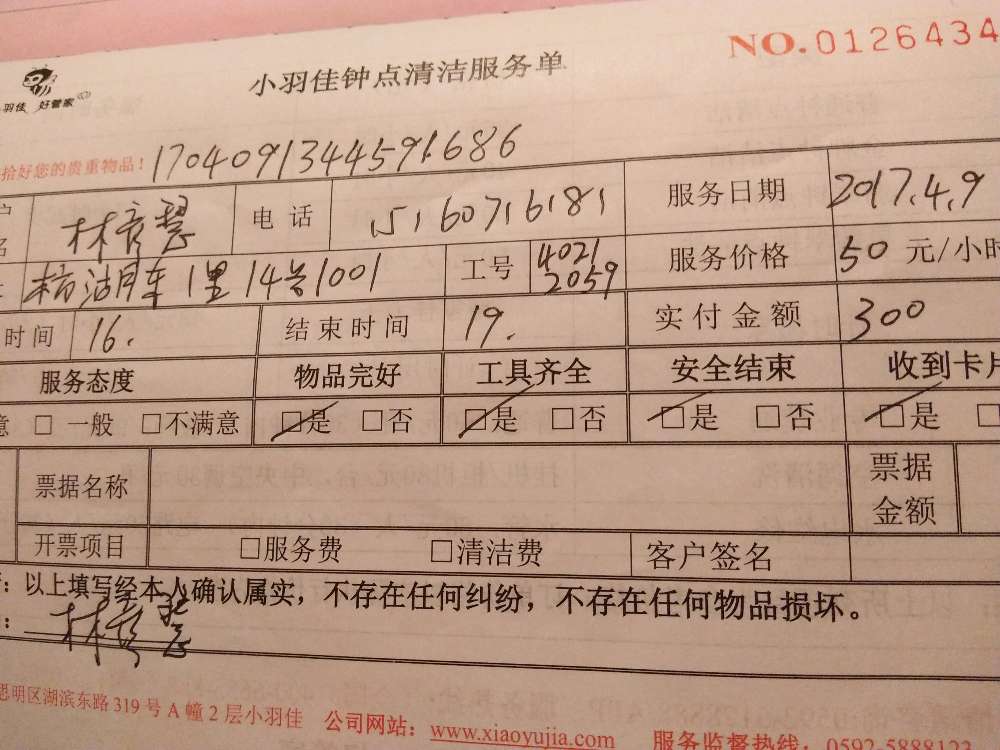 NO.0126434
小羽佳钟点清洁服务单
羽佳 好管家
拾好您的贵重物品! 1704091344591686
名 林 电话 15160716181 服务日期 2017.4.9
1里14号1001 工号 4021 2059 服务价格 50 元/小时
时间 16. 结束时间 19. 实付金额 300
服务态度 物品完好 工具齐全 安全结束 收到卡
意 □ 一般 □不满意 □是 □否 □是 □否 □是 □否 □是 □
票据名称 票据金额
开票项目 □服务费 □清洁费 客户签名
:以上填写经本人确认属实,不存在任何纠纷,不存在任何物品损坏。
: 林
思明区湖滨东路 319 号 A 幢 2 层小羽佳 公司网站: www.xiaoyujia.com 服务监督热线: 0592-5888123